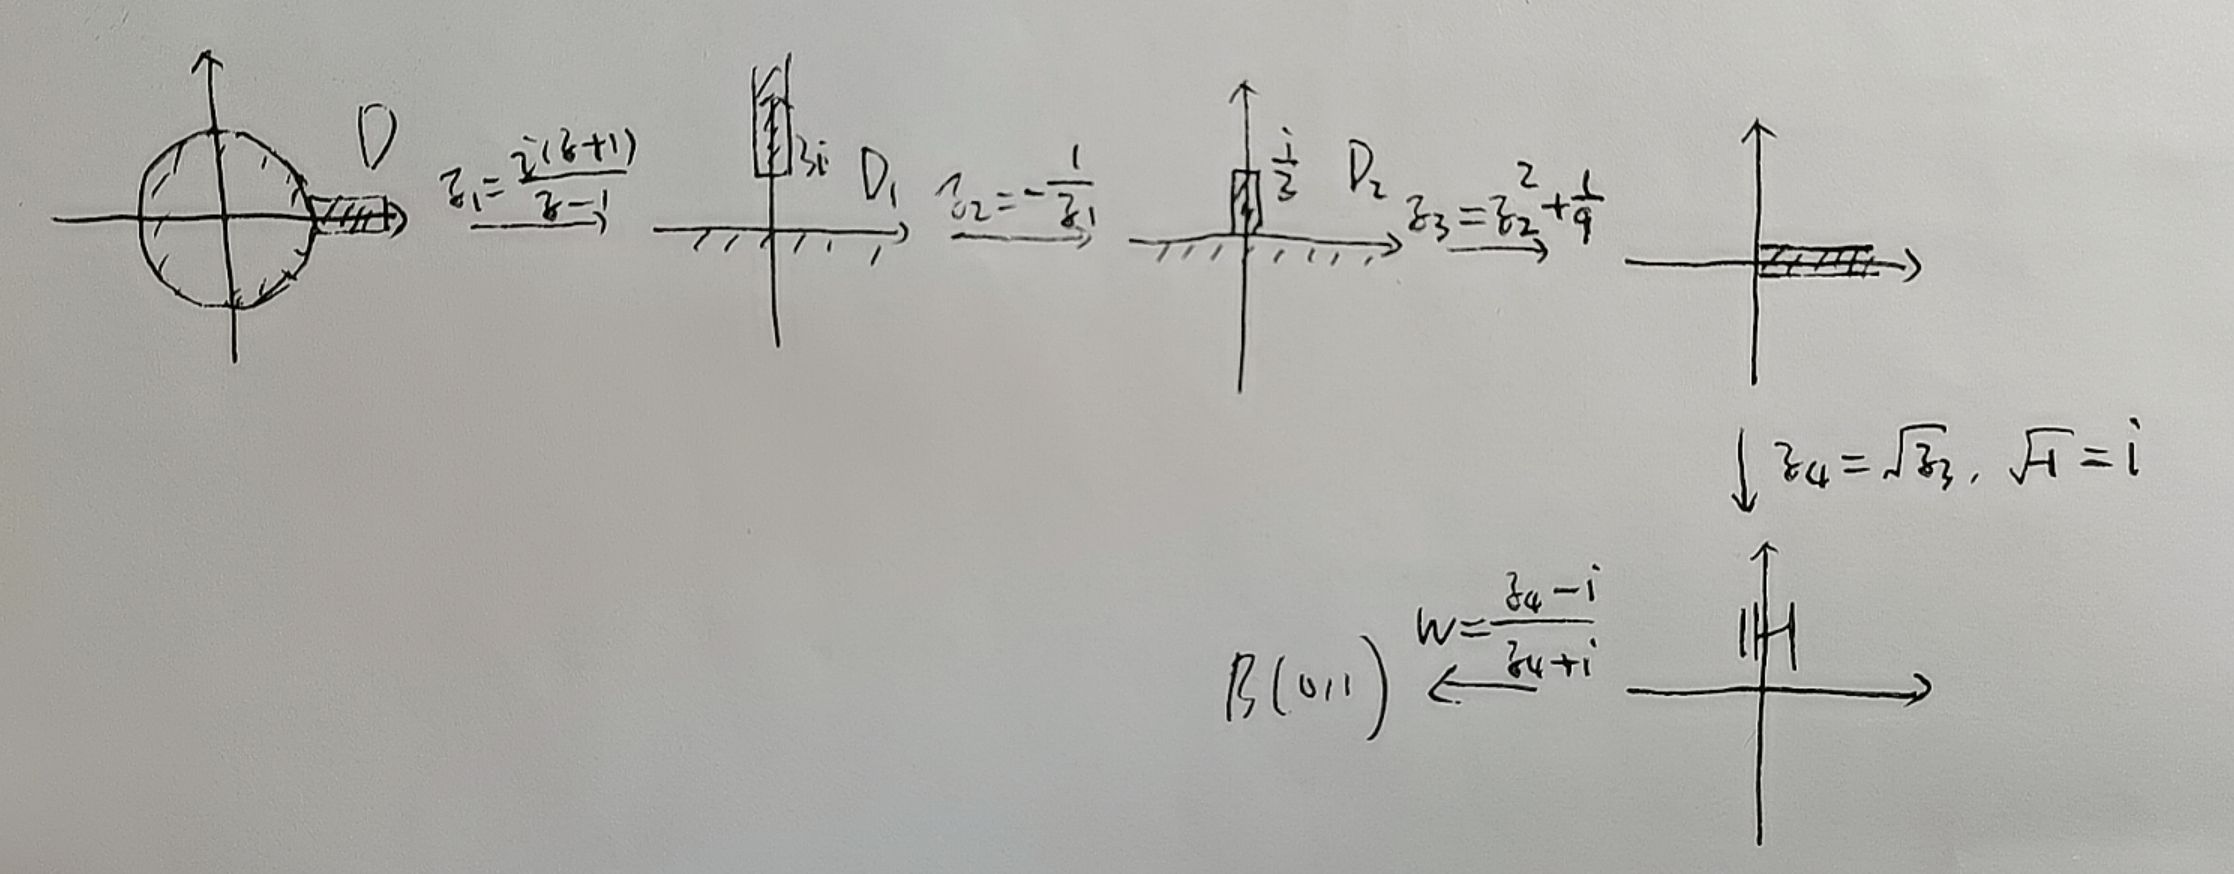 D z₁ = i(z+1)/(z-1) 3i D₁ z₂ = -1/z₁ i/3 D₂ z₃ = z₂² + 1/9
z₄ = √z₃, √-1 = i
B(0,1) w = (z₄-i)/(z₄+i) H